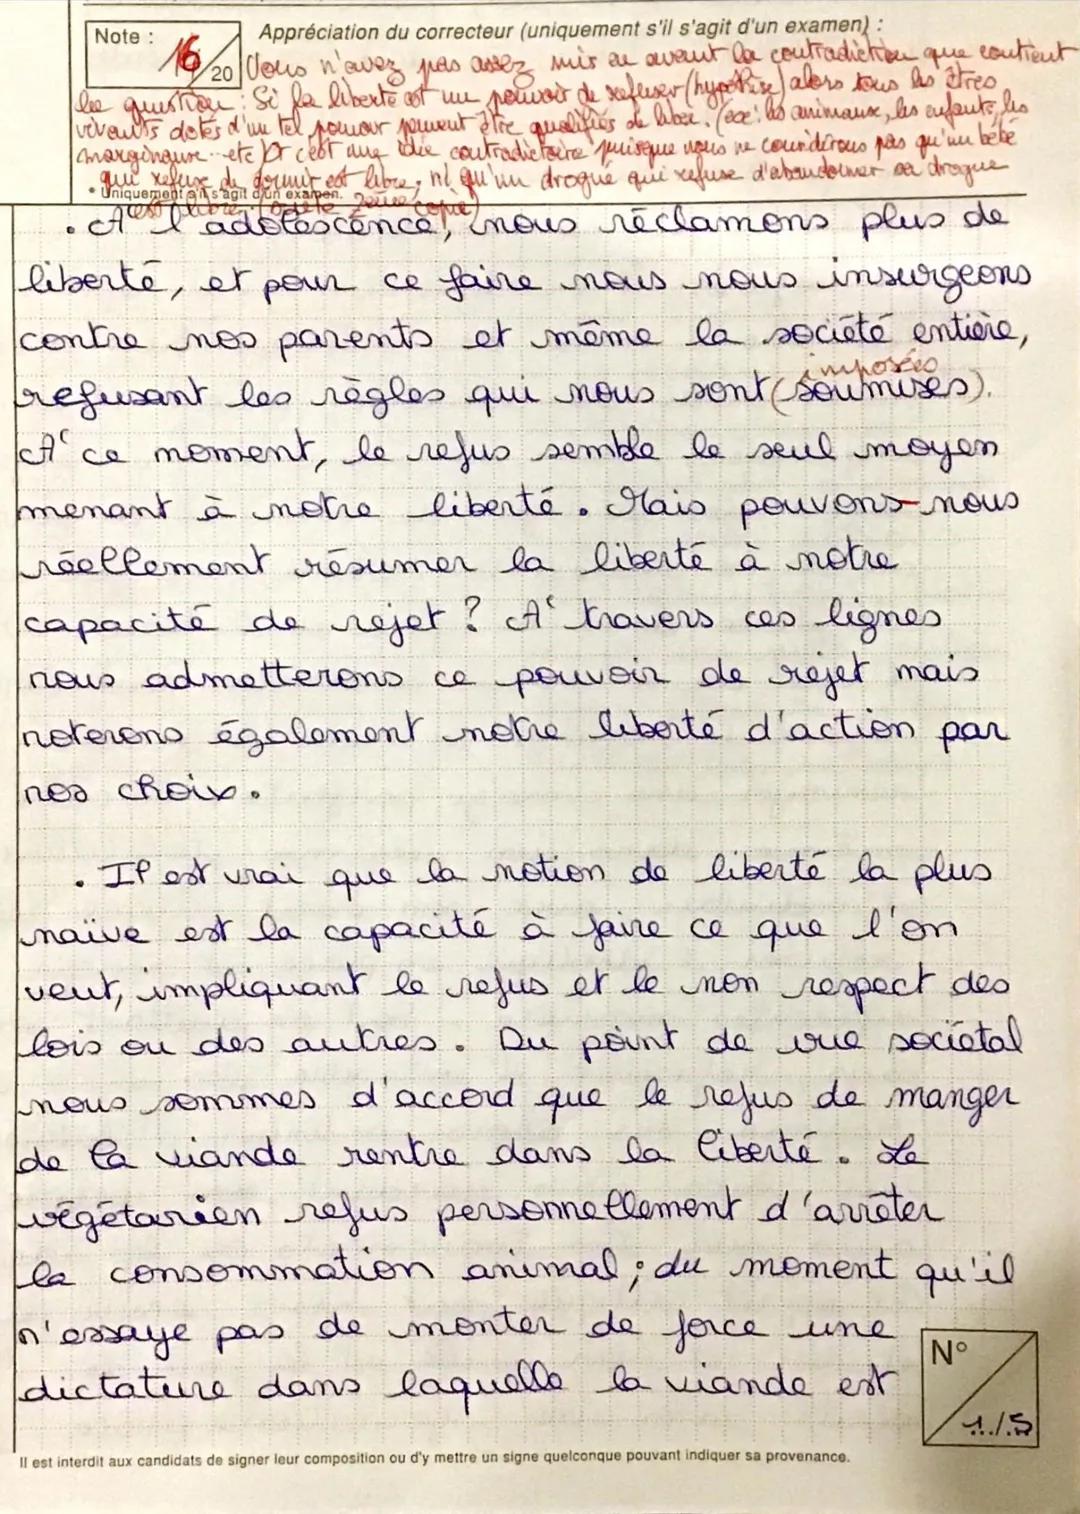 Note :
16/20
Appréciation du correcteur (uniquement s'il s'agit d'un examen) :
Vous n'avez pas assez mis en avant la contradiction que contient
la question : Si la liberté est un pouvoir de refuser (hypothèse) alors tous les êtres
vivants dotés d'un tel pouvoir peuvent être qualifiés de libre. (ex: les animaux, les enfants, les
marginaux.. etc) Or c'est une idée contradictoire puisque nous ne considérons pas qu'un bébé
qui refuse de dormir est libre, ni qu'un drogué qui refuse d'abandonner sa drogue
• Uniquement s'il s'agit d'un examen.
est libre (suite 2ème copie)
. A l'adolescence, nous réclamons plus de
liberté, et pour ce faire nous nous insurgeons
contre nos parents et même la société entière,
imposées
refusant les règles qui nous sont (soumises).
A ce moment, le refus semble le seul moyen
menant à notre liberté. Mais pouvons-nous
réellement résumer la liberté à notre
capacité de rejet ? A travers ces lignes
nous admetterons ce pouvoir de rejet mais
noterons également notre liberté d'action par
nos choix.
. Il est vrai que la notion de liberté la plus
naïve est la capacité à faire ce que l'on
veut, impliquant le refus et le non respect des
lois ou des autres. Du point de vue sociétal
nous sommes d'accord que le refus de manger
de la viande rentre dans la liberté. Le
végétarien refus personnellement d'arrêter
la consommation animal ; du moment qu'il
n'essaye pas de monter de force une
dictature dans laquelle la viande est
N°
1./.5
Il est interdit aux candidats de signer leur composition ou d'y mettre un signe quelconque pouvant indiquer sa provenance.